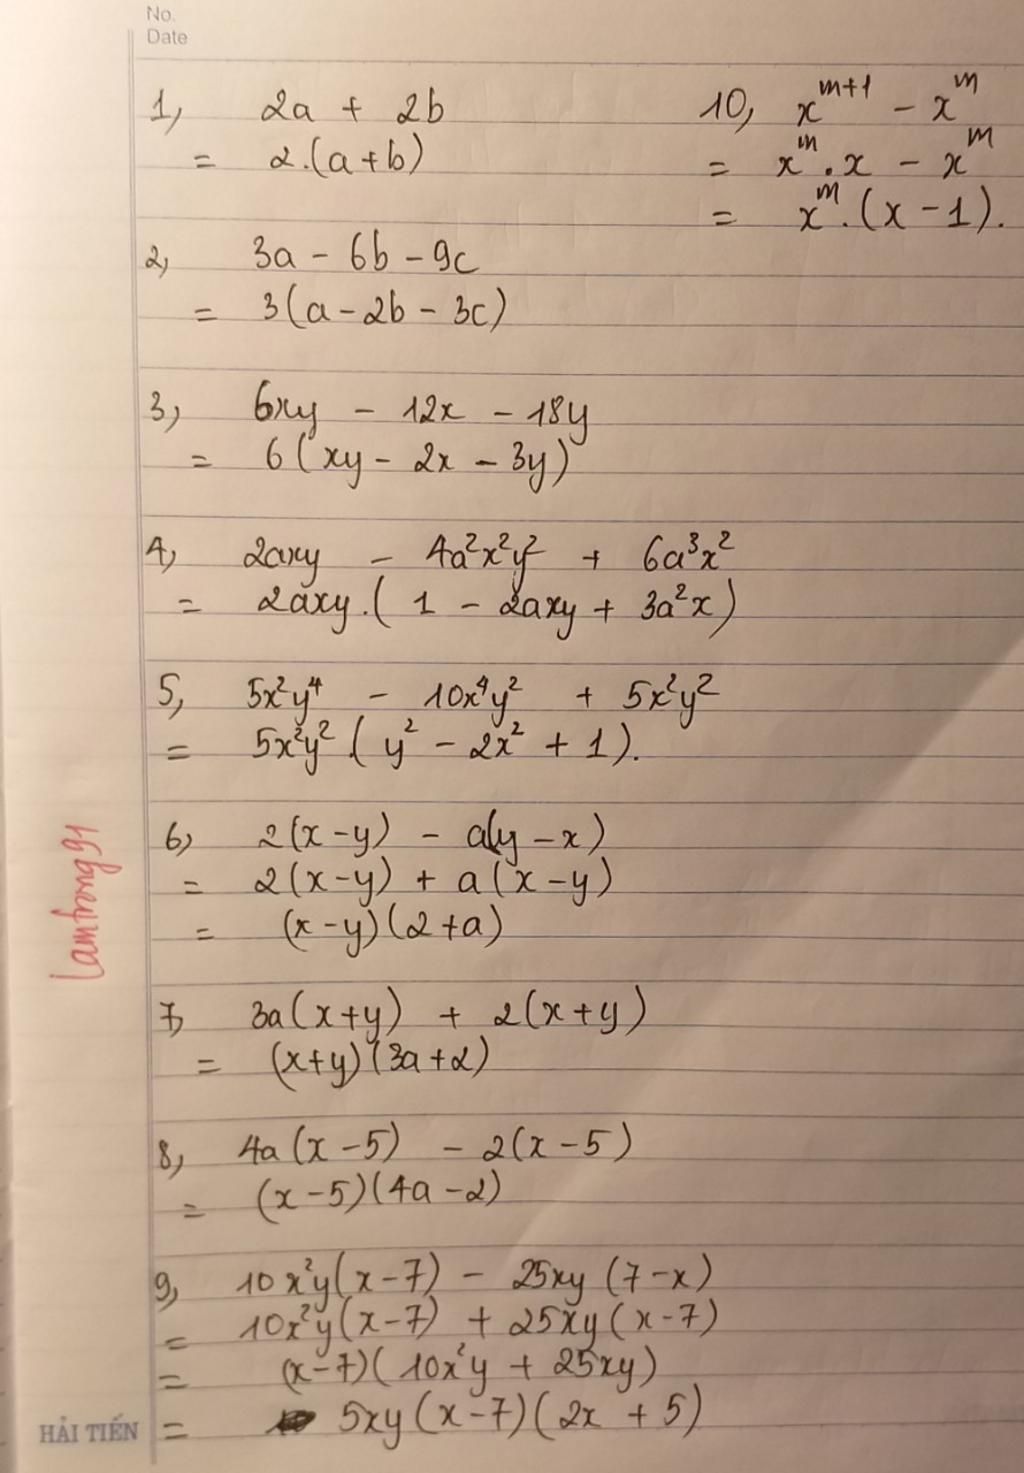 No.
Date
1, 2a + 2b
= 2.(a+b)
2, 3a - 6b - 9c
= 3(a-2b-3c)
3, 6xy - 12x - 18y
= 6(xy - 2x - 3y)
4, 2axy - 4a²x²y² + 6a³x²
= 2axy.(1 - 2axy + 3a²x)
5, 5x²y⁴ - 10x⁴y² + 5x²y²
= 5x²y².(y² - 2x² + 1).
6, 2(x-y) - a(y-x)
= 2(x-y) + a(x-y)
= (x-y)(2+a)
7, 3a(x+y) + 2(x+y)
= (x+y)(3a+2)
8, 4a(x-5) - 2(x-5)
= (x-5)(4a-2)
9, 10x²y(x-7) - 25xy(7-x)
= 10x²y(x-7) + 25xy(x-7)
= (x-7)(10x²y + 25xy)
= 5xy(x-7)(2x + 5)
10, xᵐ⁺¹ - xᵐ
= xᵐ.x - xᵐ
= xᵐ.(x-1).
lamtrong91
HẢI TIẾN